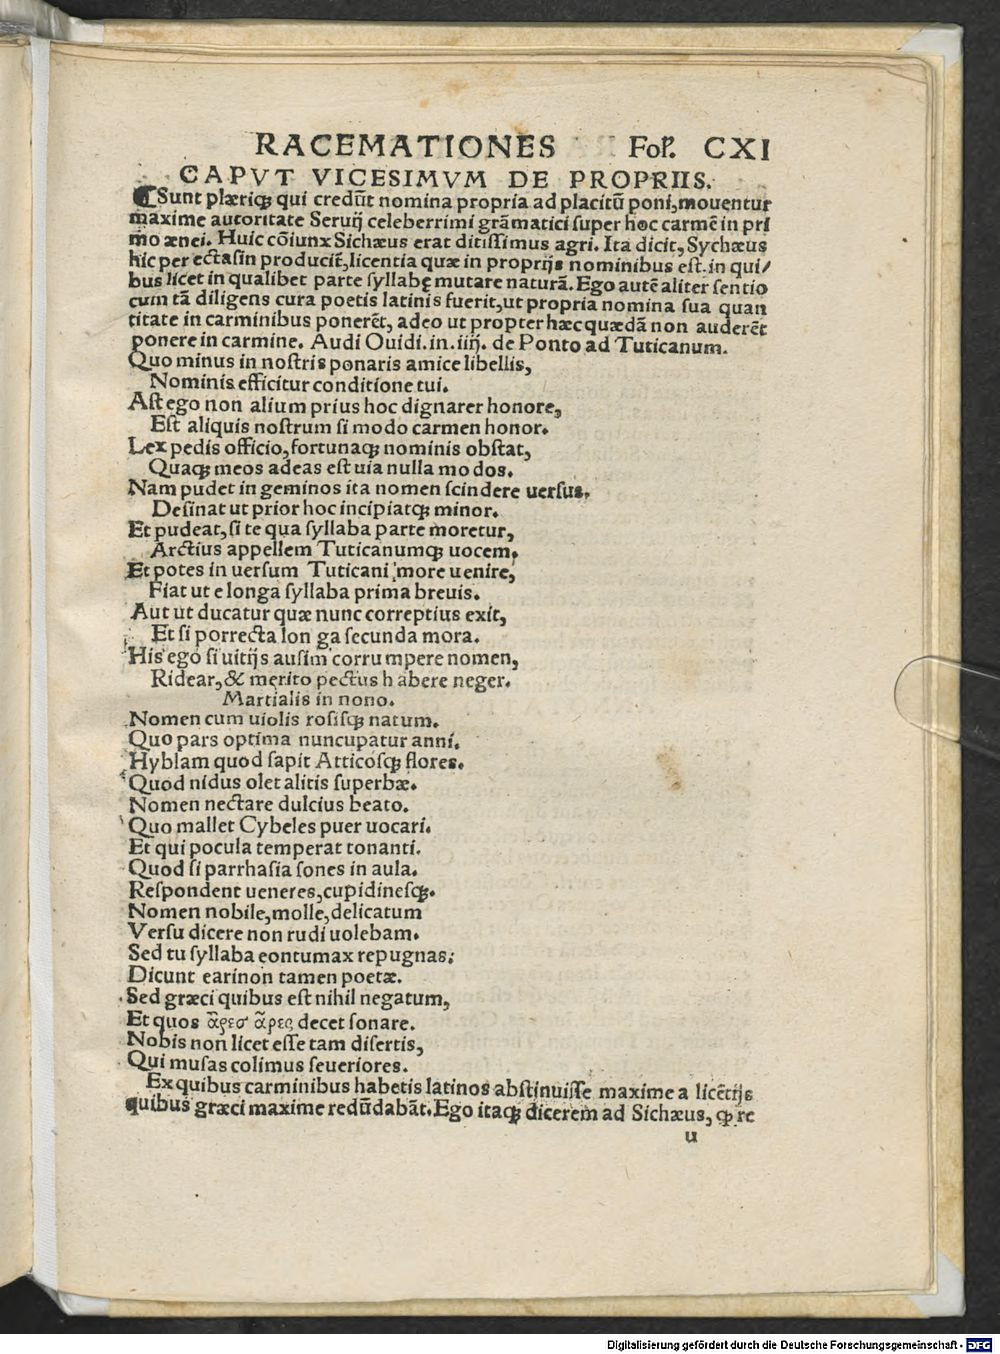 RACEMATIONES Fol. CXI
CAPVT VICESIMVM DE PROPRIIS.
Sunt plæriqꝫ qui credūt nomina propria ad placitū poni, mouentur
maxime autoritate Seruĳ celeberrimi grāmatici super hoc carmē in pri
mo ænei. Huic cōiunx Sichæus erat ditissimus agri. Ita dicit, Sychæus
hic per ectasin producit̄, licentia quæ in proprĳs nominibus est. in qui/
bus licet in qualibet parte syllabę mutare naturā. Ego autē aliter sentio
cum tā diligens cura poetis latinis fuerit, ut propria nomina sua quan
titate in carminibus ponerēt, adeo ut propter hæc quædā non auderēt
ponere in carmine. Audi Ouidi. in. iiĳ. de Ponto ad Tuticanum.
Quo minus in nostris ponaris amice libellis,
Nominis efficitur conditione tui.
Ast ego non alium prius hoc dignarer honore,
Est aliquis nostrum si modo carmen honor.
Lex pedis officio, fortunaqꝫ nominis obstat,
Quaqꝫ meos adeas est uia nulla modos.
Nam pudet in geminos ita nomen scindere uersus,
Desinat ut prior hoc incipiatqꝫ minor.
Et pudeat, si te qua syllaba parte moretur,
Arctius appellem Tuticanumqꝫ uocem.
Et potes in uersum Tuticani more uenire,
Fiat ut e longa syllaba prima breuis.
Aut ut ducatur quæ nunc correptius exit,
Et si porrecta lon ga secunda mora.
His ego si uitĳs ausim corru mpere nomen,
Ridear, & merito pectus habere neger.
Martialis in nono.
Nomen cum uiolis rosisqꝫ natum.
Quo pars optima nuncupatur anni.
Hyblam quod sapit Atticosqꝫ flores.
Quod nidus olet alitis superbæ.
Nomen nectare dulcius beato.
Quo mallet Cybeles puer uocari.
Et qui pocula temperat tonanti.
Quod si parrhasia sones in aula.
Respondent ueneres, cupidinesqꝫ.
Nomen nobile, molle, delicatum
Versu dicere non rudi uolebam.
Sed tu syllaba contumax repugnas:
Dicunt earinon tamen poetæ.
Sed græci quibus est nihil negatum,
Et quos ἆρεσ ἄρες decet sonare.
Nobis non licet esse tam disertis,
Qui musas colimus seueriores.
Ex quibus carminibus habetis latinos abstinuisse maxime a licētĳs
quibus græci maxime redūdabāt. Ego itaqꝫ dicerem ad Sichæus, ꝙ re
u
Digitalisierung gefördert durch die Deutsche Forschungsgemeinschaft - DFG